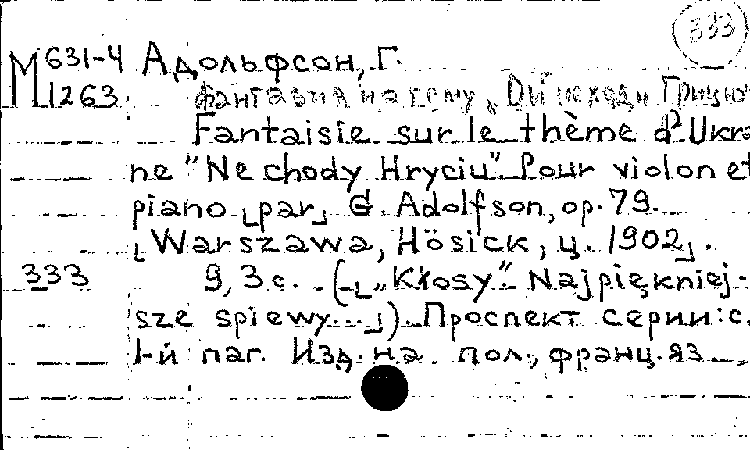 333
М 631-4 Адольфсон, Г.
1263 Фантазия на тему „Ой не ходи Грицю
Fantaisie sur le thème d'Ukrai
ne "Ne chody Hryciu". Pour violon et
piano [par] G. Adolfson, op. 79.
[Warszawa, Hösick, ц. 1902].
333 9, 3 с. ([„Kłosy". Najpiękniej-
sze spiewy...]) Проспект серии: с.
1-й паг. Изд. на пол., франц. яз